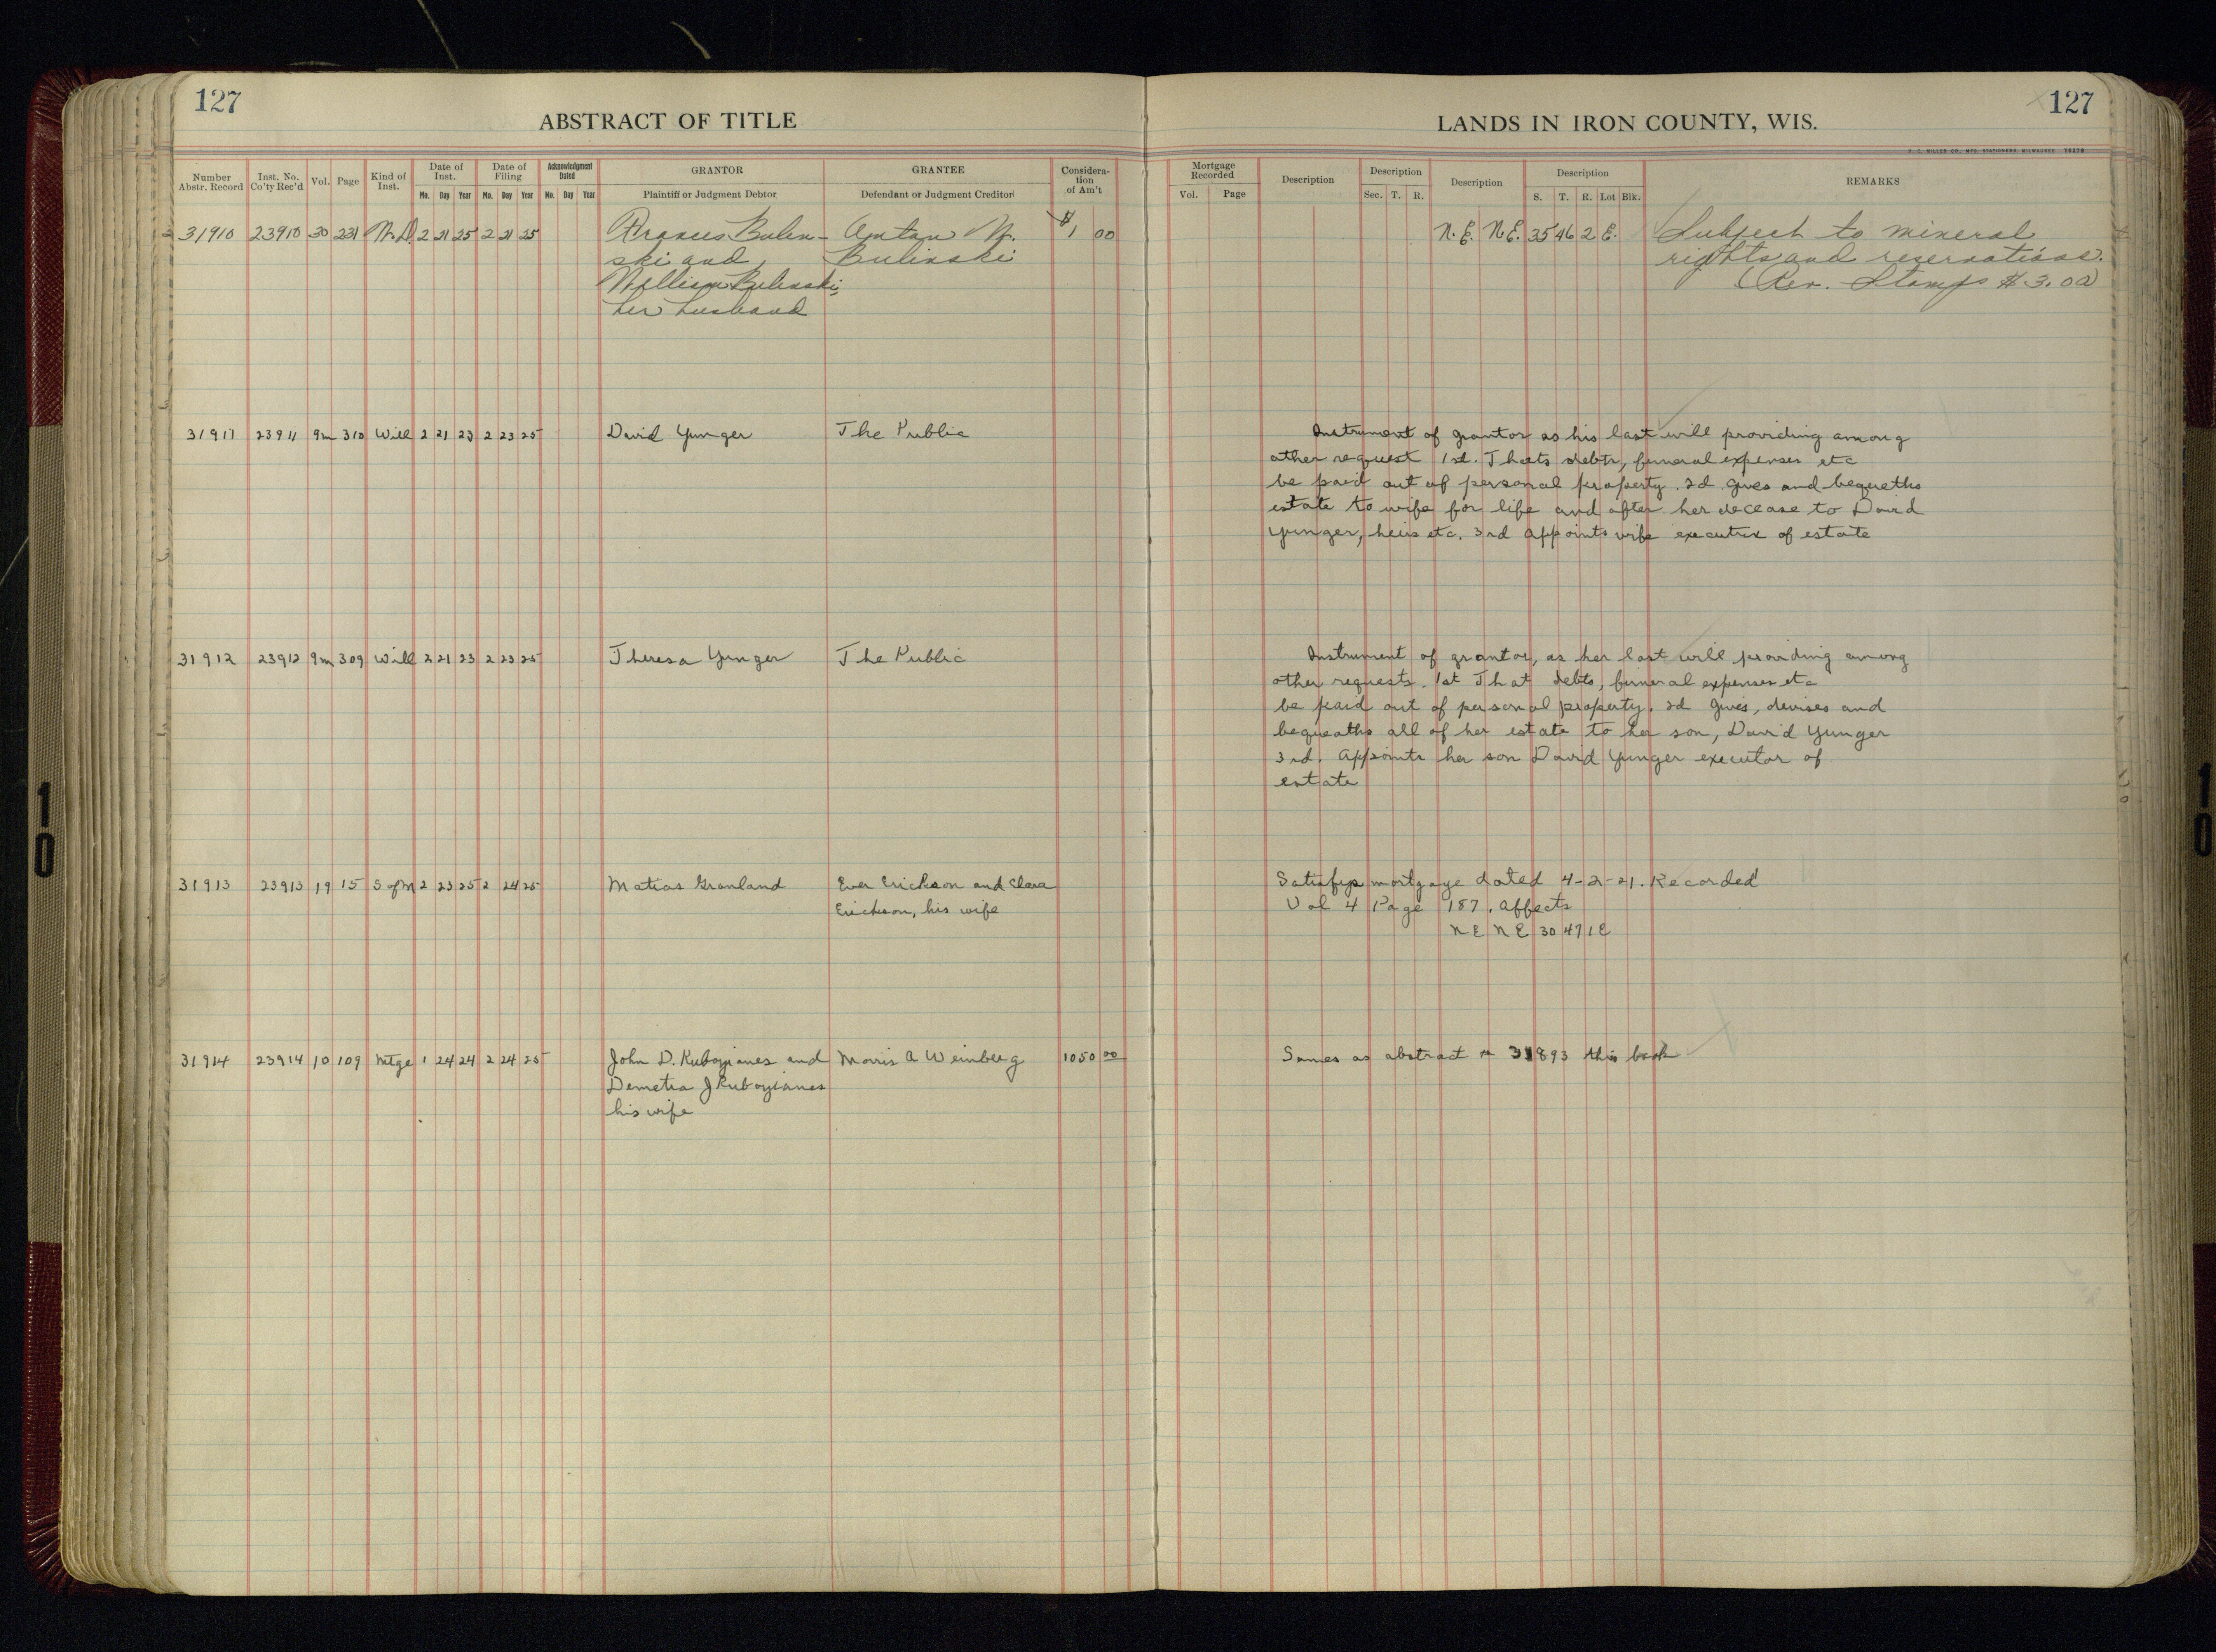 127
ABSTRACT OF TITLE
Number Abstr. Record
Inst. No. Co'ty Rec'd
Vol.
Page
Kind of Inst.
Date of Inst.
Mo. Day Year
Date of Filing
Mo. Day Year
Acknowledgment Dated
Mo. Day Year
GRANTOR
Plaintiff or Judgment Debtor
GRANTEE
Defendant or Judgment Creditor
Considera-
tion
of Am't
31910 23910 30 231 W.D. 2 21 25 2 21 25 Bulin- Anton W. $1 00
ski and Bulinski
William Bulinski,
her husband
31911 23911 9m 310 Will 2 21 23 2 23 25 David Yunger The Public
31912 23912 9m 309 Will 2 21 23 2 23 25 Theresa Yunger The Public
31913 23913 19 15 S of M 2 23 25 2 24 25 Matias Granland Ever Erickson and Clara
Erickson, his wife
31914 23914 10 109 Mtge 1 24 24 2 24 25 John D. Kuboyianes and Morris A Weinberg 1050 00
Demetra J Kuboyianes
his wife
LANDS IN IRON COUNTY, WIS.
127
H. C. MILLER CO., MFG. STATIONERS, MILWAUKEE
Mortgage Recorded
Vol. Page
Description
Description
Sec. T. R.
Description
Description
S. T. R. Lot Blk.
REMARKS
N.E. N.E. 35 46 2 E. Subject to mineral
rights and reservations.
(Rev. Stamps $3.00)
Instrument of grantor as his last will providing among
other request 1st. Thats debts, funeral expenses etc
be paid out of personal property. 2d. gives and bequeths
estate to wife for life and after her decease to David
Yunger, heirs etc. 3rd appoints wife executrix of estate
Instrument of grantor, as her last will providing among
other requests. 1st That debts, funeral expenses etc
be paid out of personal property. 2d gives, devises and
bequeaths all of her estate to her son, David Yunger
3rd. Appoints her son David Yunger executor of
estate
Satisfys mortgage dated 4-2-21. Recorded
Vol 4 Page 187. Affects
N E N E 30 47 1 E
Sames as abstract # 31893 this book
10
10